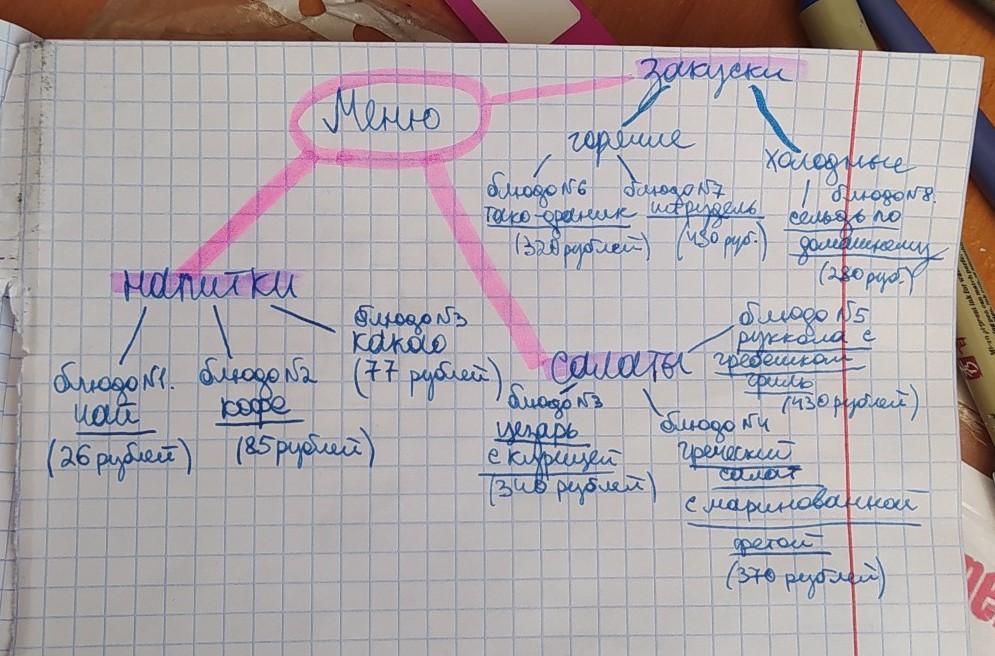 Меню
закуски
горячие
холодные
блюдо №6
тако-драник
(320 рублей)
блюдо №7
штрудель
(430 руб.)
блюдо №8.
сельдь по
домашнему
(280 руб.)
напитки
блюдо №1.
чай
(26 рублей)
блюдо №2
кофе
(85 рублей)
блюдо №3
какао
(77 рублей)
салаты
блюдо №3
цезарь
с курицей
(340 рублей)
блюдо №4
греческий
салат
с маринованной
фетой
(370 рублей)
блюдо №5
руккола с
гребешком
гриль
(430 рублей)